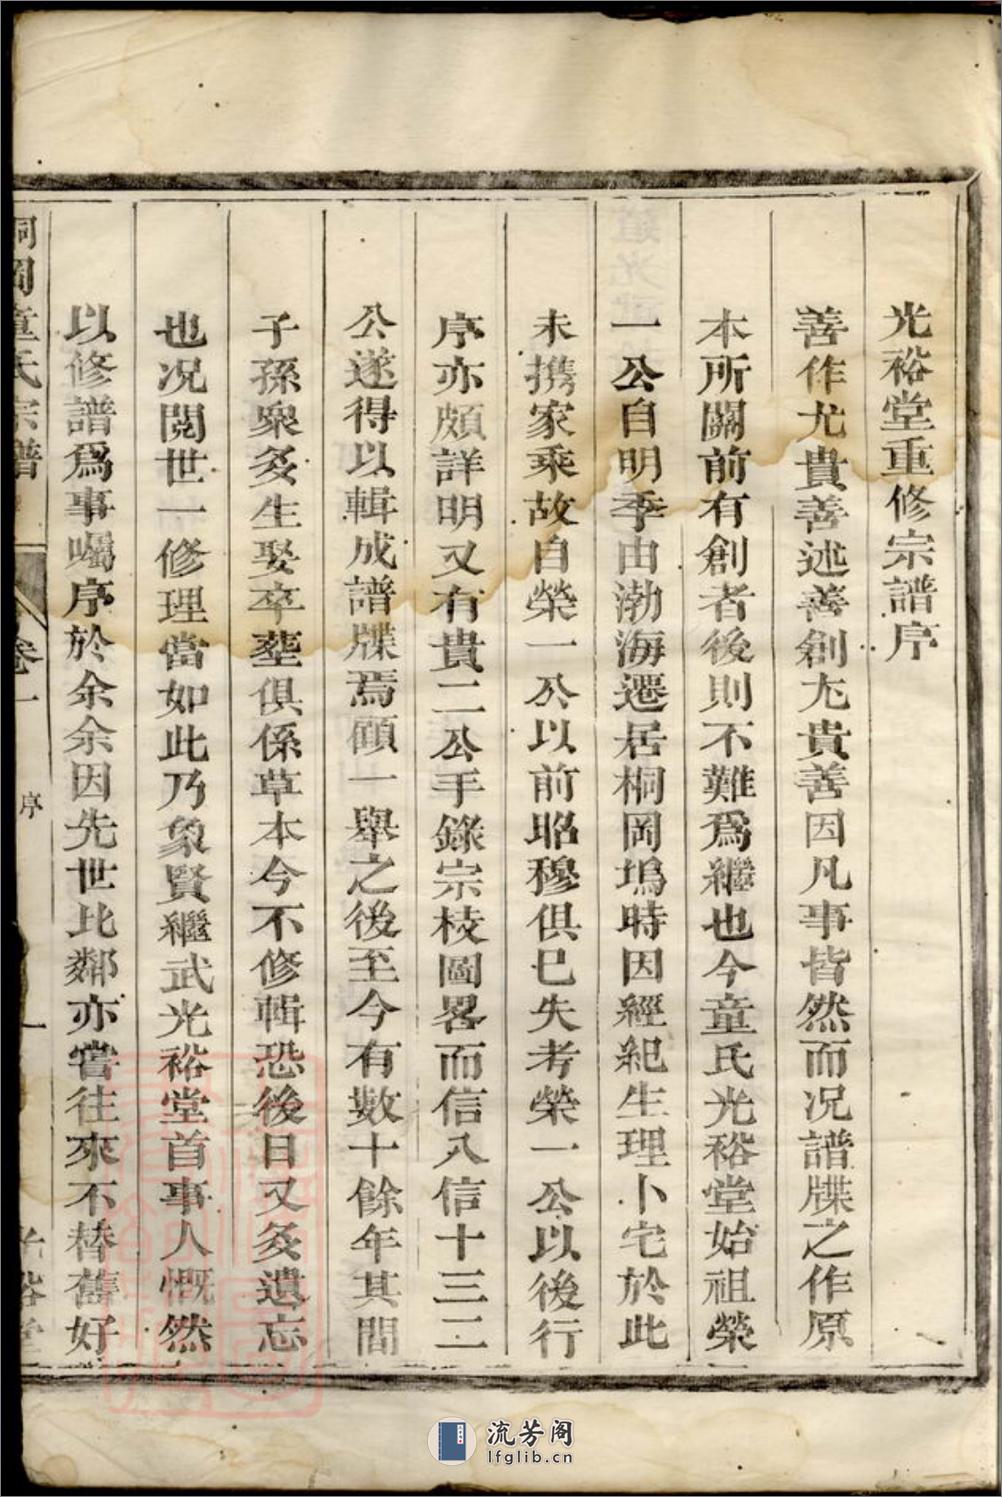 光裕堂重修宗譜序
善作尤貴善述善創尤貴善因凡事皆然而況譜牒之作原
本所關前有創者後則不難爲繼也今童氏光裕堂始祖榮
一公自明季由渤海遷居桐岡塢時因經紀生理卜宅於此
未携家乘故自榮一公以前昭穆俱已失考榮一公以後行
序亦頗詳明又有貴二公手錄宗枝圖畧而信八信十三二
公遂得以輯成譜牒焉顧一舉之後至今有數十餘年其間
子孫衆多生娶卒塟俱係草本今不修輯恐後日又多遺忘
也况閱世一修理當如此乃象賢繼武光裕堂首事人慨然
以修譜爲事囑序於余余因先世比鄰亦嘗往來不替舊好
桐岡童氏宗譜
卷一
序
一
光裕堂
流芳阁
lfglib.cn